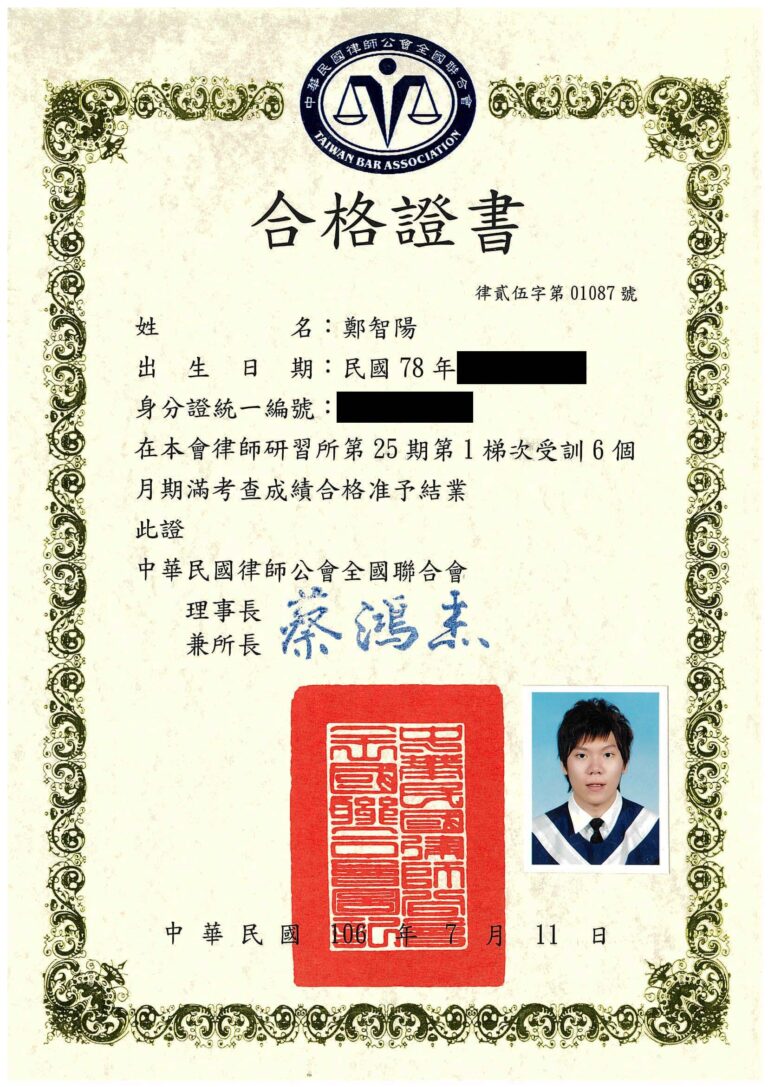 中華民國律師公會全國聯合會
TAIWAN BAR ASSOCIATION
合格證書
律貳伍字第 01087 號
姓名：鄭智陽
出生日期：民國 78 年
身分證統一編號：
在本會律師研習所第 25 期第 1 梯次受訓 6 個
月期滿考查成績合格准予結業
此證
中華民國律師公會全國聯合會
理事長
兼所長
蔡鴻杰
中華民國律師公會
全國聯合會圖記
中華民國 106 年 7 月 11 日